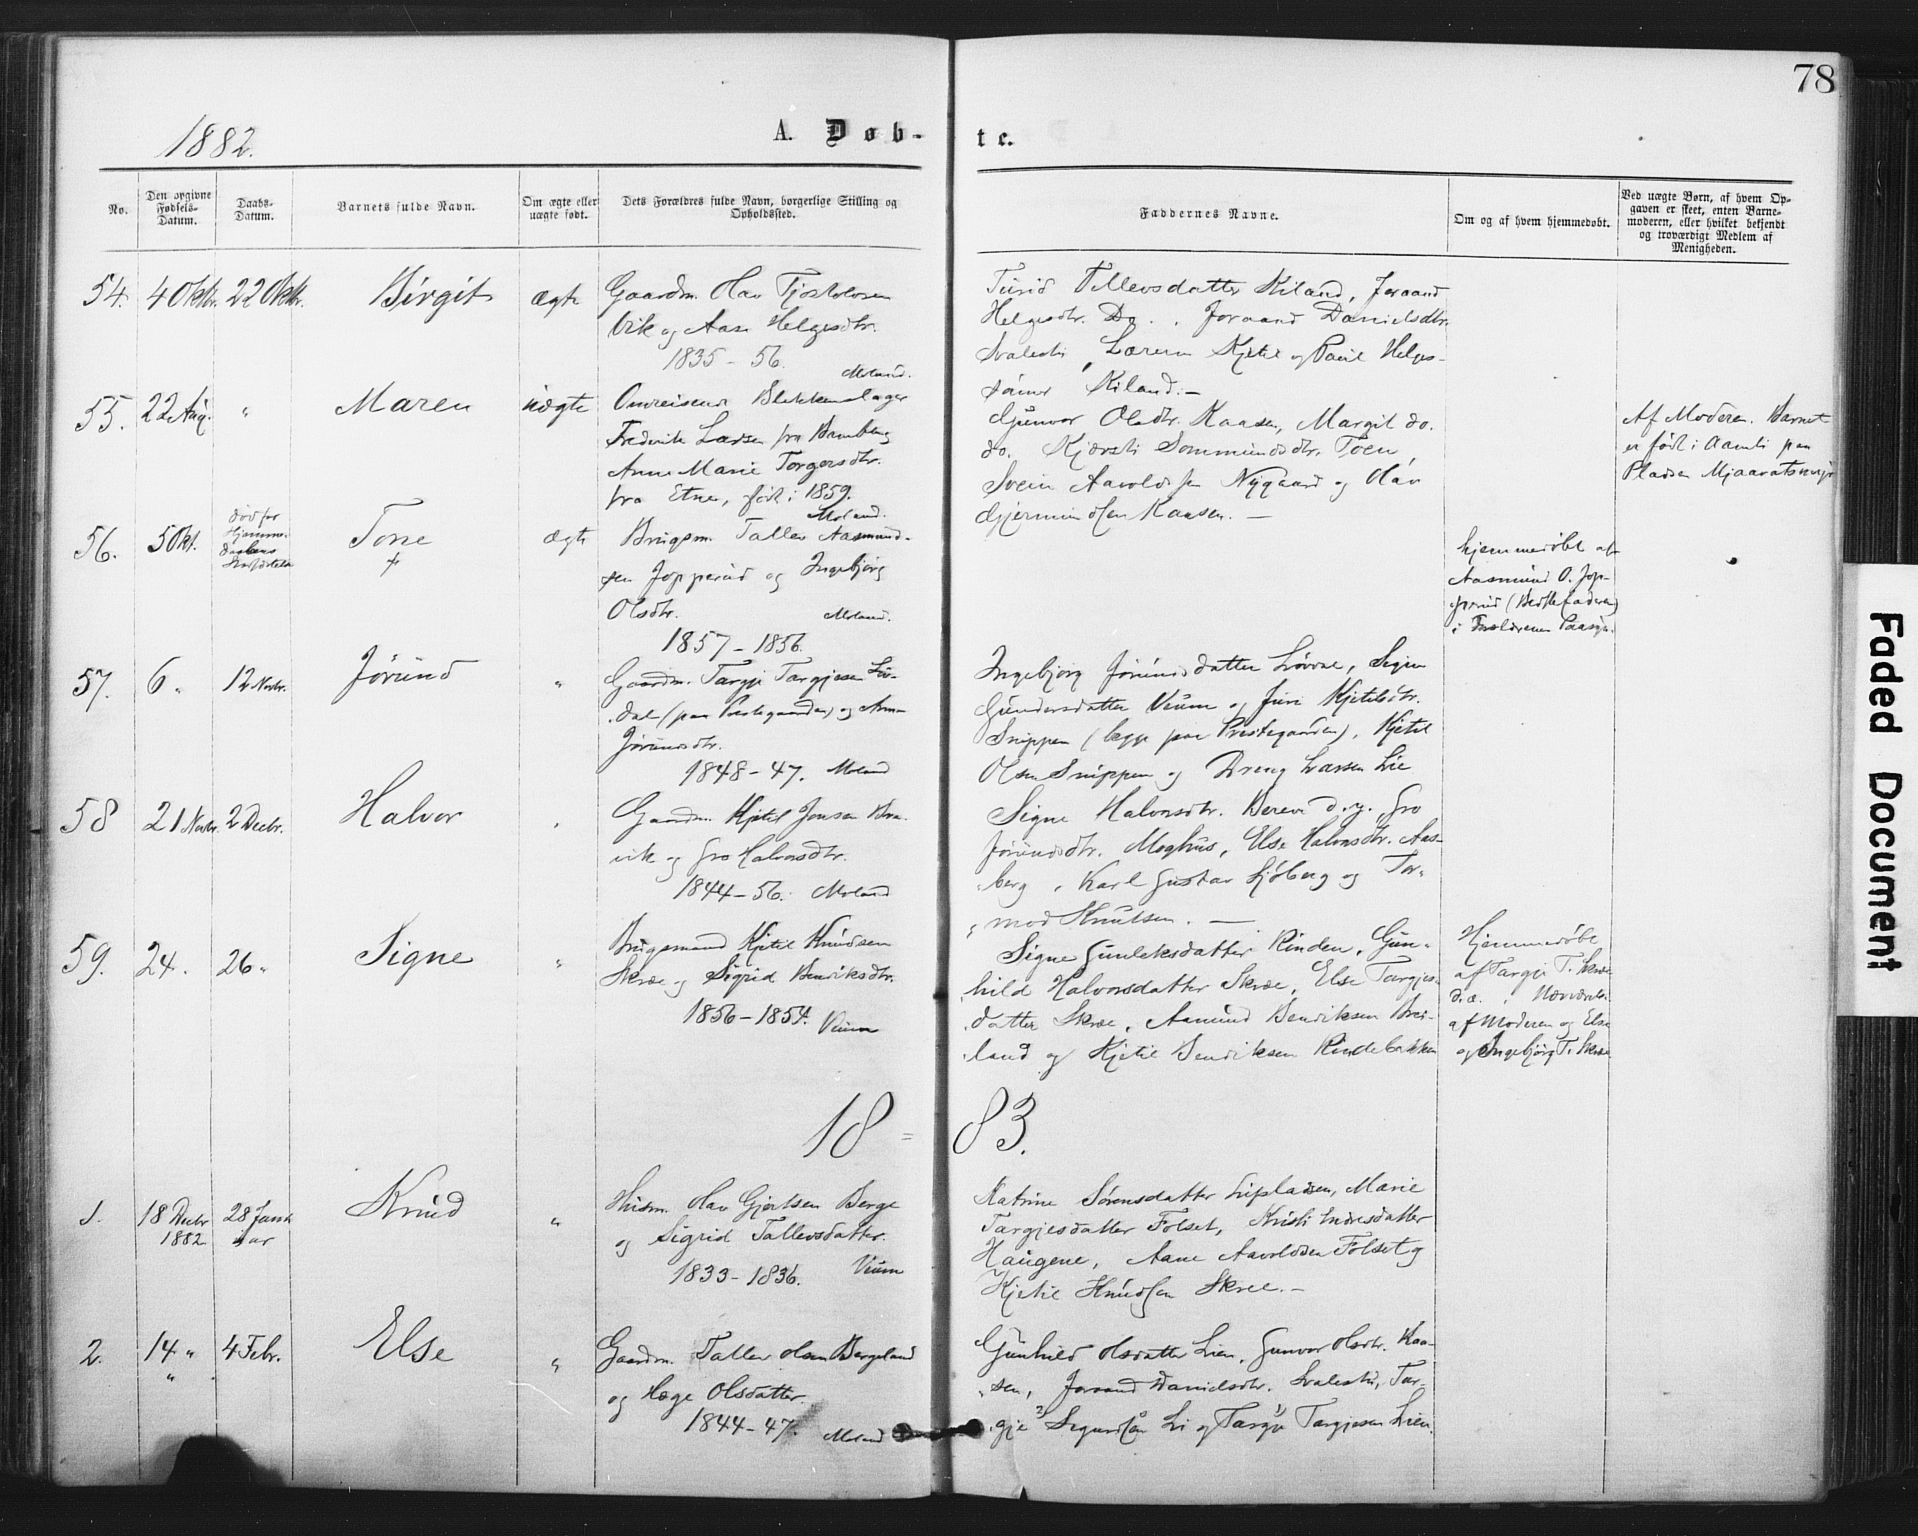 78
1882.
A. Døb-
te.
No.
Den opgivne Fødsels-Datum.
Daabs-Datum.
Barnets fulde Navn.
Om ægte eller uægte født.
Dets Forældres fulde Navn, borgerlige Stilling og Opholdssted.
Faddernes Navne.
Om og af hvem hjemmedøbt.
Ved uægte Børn, af hvem Opgaven er skeet, enten Barnemoderen, eller hvilket bekjendt og troværdigt Medlem af Menigheden.
54. 4 Oktbr. 22 Oktbr. Birgit ægte
Gaardm. Olav Tjostolvsen
Vik og Aase Helgesdtr.
1835 - 56.
Moland.
Turid Tellevsdatter Kiland, Joraand
Helgesdtr. Do., Joraand Danielsdtr.
Svalesti, Læreren Kjetil og Paul Helge-
sønner Kiland. -
55. 22 Aug. " Maren uægte
Omreisende Blikkenslager
Frederik Larsen fra Bamberg
Anne Marie Torgersdtr.
fra Etne, født i 1859.
Moland.
Gunvor Olsdtr. Kaasen, Margit do.
do. Kjersti Sommundsdtr. Toen,
Svein Aavoldsen Nygaard og Olav
Gjermundsen Kaasen. -
Af Moderen. Barnet
er født i Aamli paa
Pladsen
56. 5 Okt.
død før
Hjemme-
daabens
Stadfæstelse
Tone
+
ægte
Brugsm. Tallev Aasmund-
sen Jopperud og Ingebjørg
Olsdtr.
Moland.
1857 - 1856.
hjemmedøbt af
Aasmund O. Jop-
perud (Bedstefaderen)
i Forældrenes Paasyn.
57. 6 " 12 Novbr. Jørund "
Gaardm. Targje Targjesen Liv-
dal (paa Prestegaarden) og Anne
Jørundsdtr.
1848 - 47. Moland
Ingebjørg Jørundsdatter Løvvne, Signe
Gundersdatter Veum og Juri Kjetilsdtr.
Snippen (begge paa Prestegaarden), Kjetil
Olsen Snippen og Dreng Larsen Lie
58 21 Novbr. 2 Decbr. Halvor "
Gaardm. Kjetil Jonsen Bra-
vik og Gro Halvorsdtr.
1844 - 56. Moland
Signe Halvorsdtr. Berevi d.y., Gro
Jørundsdtr. Moghus, Else Halvorsdtr. Aas-
berg, Karl Gustav Sjøberg og Tor-
mod Knutsen. -
59. 24. 26 " Signe "
Brugsmand Kjetil Knudsen
Skræe og Sigrid Benriksdtr.
1856 - 1854. Veum
Signe Gunleksdatter Rinden, Gun-
hild Halvorsdatter Skræe, Else Targjes-
datter Skræe, Aamund Benriksen Brei-
land og Kjetil Benriksen Rindebakken
Hjemmedøbt
af Targje T. Skræe
d.æ.
af Moderen og Else
og Ingebjørg T. Skræe
18 = 83.
1. 18 Decbr 1882. 28 Januar Knud "
Husm. Olav Gjertsen Berge
og Sigrid Tallevsdatter.
1833 - 1836. Veum
Katrine Sørensdatter Lispladsen, Marie
Targjesdatter Folset, Kristi Endresdatter
Haugene, Aane Aavoldsen Folset og
Kjetil Knudsen Skree. -
2. 14 " " 4 Febr. Else "
Gaardm. Tallev Olsen Bergeland
og Hæge Olsdatter.
1844 - 47. Moland
Gunhild Olsdatter Lien, Gunvor Olsdtr. Kaa-
sen, Joraand Danielsdtr. Svalesti, Tar-
gje 2) Sigurdsøn Li og Targje 1) Targjesen Lien.
Faded Document